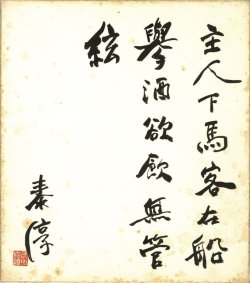 主人下馬客在船
舉酒欲飲無管
絃
泰淳